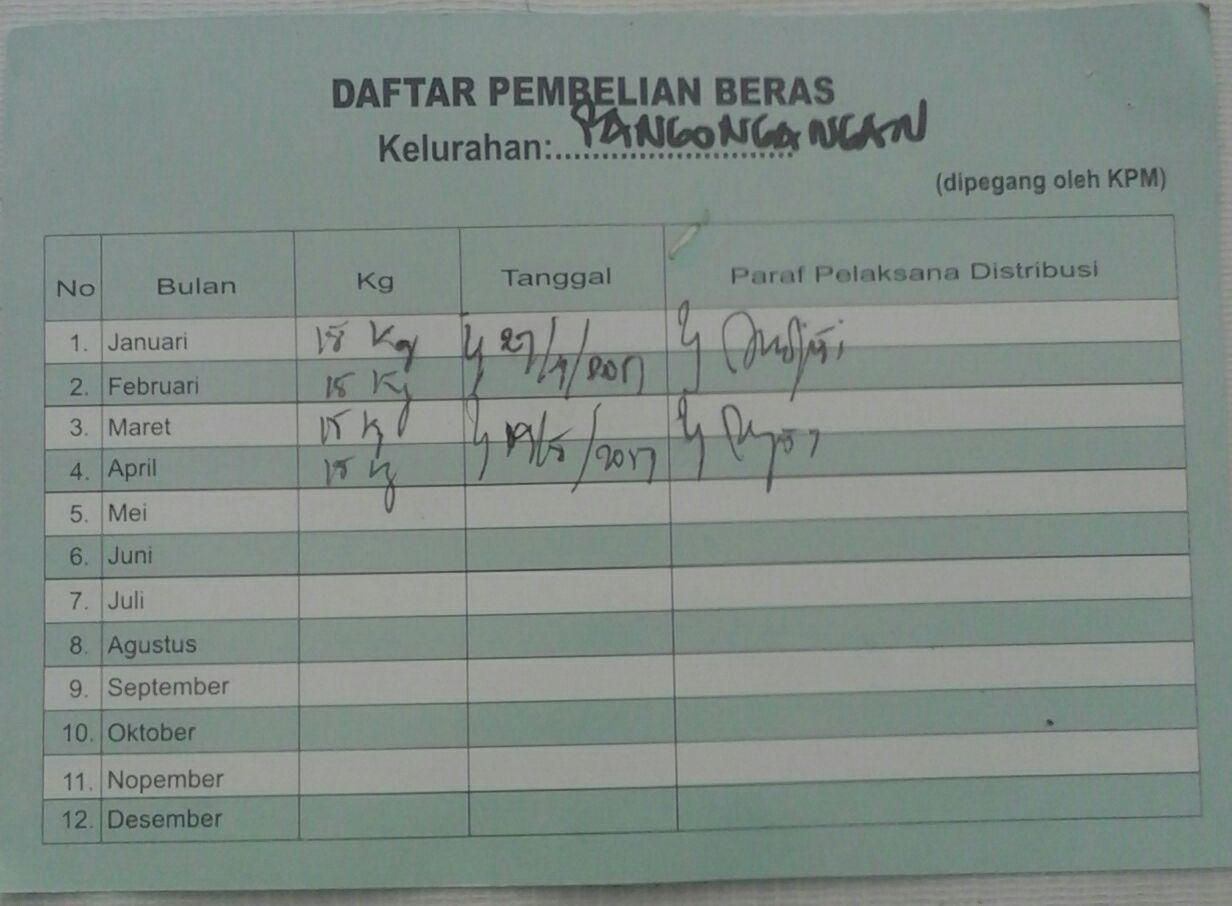 DAFTAR PEMBELIAN BERAS
Kelurahan:.......................... PANGONGANGAN
(dipegang oleh KPM)
No Bulan Kg Tanggal Paraf Pelaksana Distribusi
1. Januari 15 Kg 27/4/2017
2. Februari 15 Kg
3. Maret 15 Kg 19/5/2017
4. April 15 Kg
5. Mei
6. Juni
7. Juli
8. Agustus
9. September
10. Oktober
11. Nopember
12. Desember